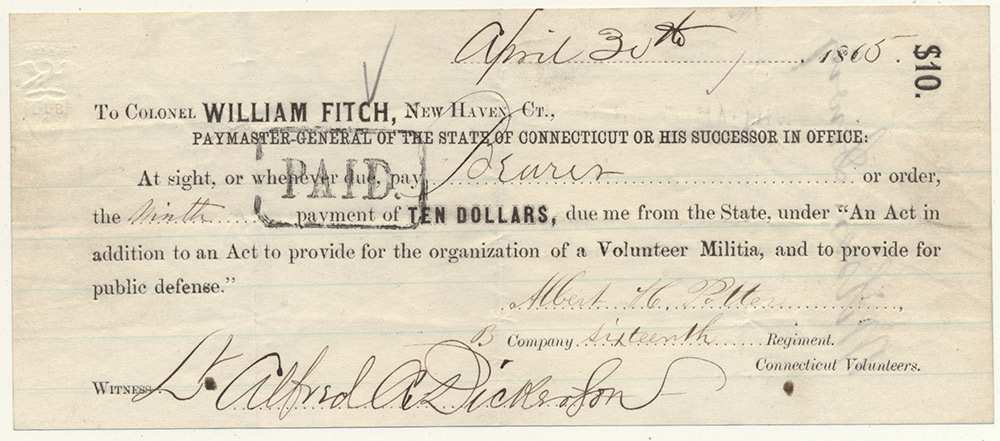 April 30th 1865.
$10.
To Colonel WILLIAM FITCH, New Haven, Ct.,
PAYMASTER-GENERAL OF THE STATE OF CONNECTICUT OR HIS SUCCESSOR IN OFFICE:
At sight, or whenever due, pay Bearer or order,
PAID.
the Ninth payment of TEN DOLLARS, due me from the State, under "An Act in
addition to an Act to provide for the organization of a Volunteer Militia, and to provide for
public defense."
Albert H. Potter,
B Company sixteenth Regiment.
Connecticut Volunteers.
Witness Lt Alfred A. Dickerson